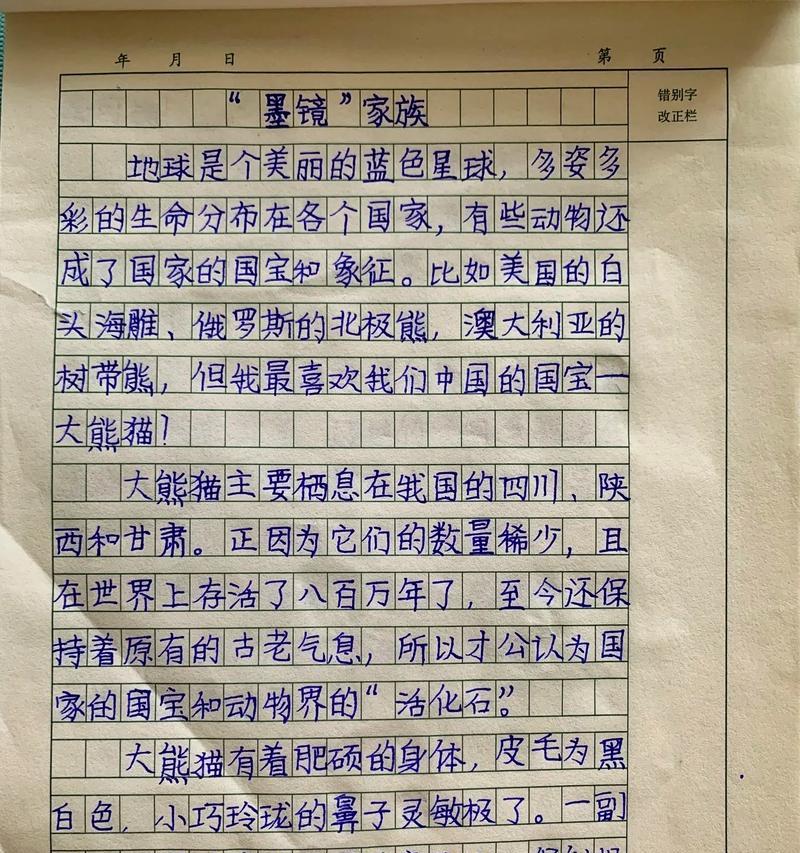 年 月 日 第 页
错别字
改正栏
“墨镜”家族
地球是个美丽的蓝色星球，多姿多
彩的生命分布在各个国家，有些动物还
成了国家的国宝和象征。比如美国的白
头海雕、俄罗斯的北极熊，澳大利亚的
树带熊，但我最喜欢我们中国的国宝—
大熊猫！
大熊猫主要栖息在我国的四川、陕
西和甘肃。正因为它们的数量稀少，且
在世界上存活了八百万年了，至今还保
持着原有的古老气息，所以才公认为国
家的国宝和动物界的“活化石”。
大熊猫有着肥硕的身体，皮毛为黑
白色，小巧玲珑的鼻子灵敏极了。一副